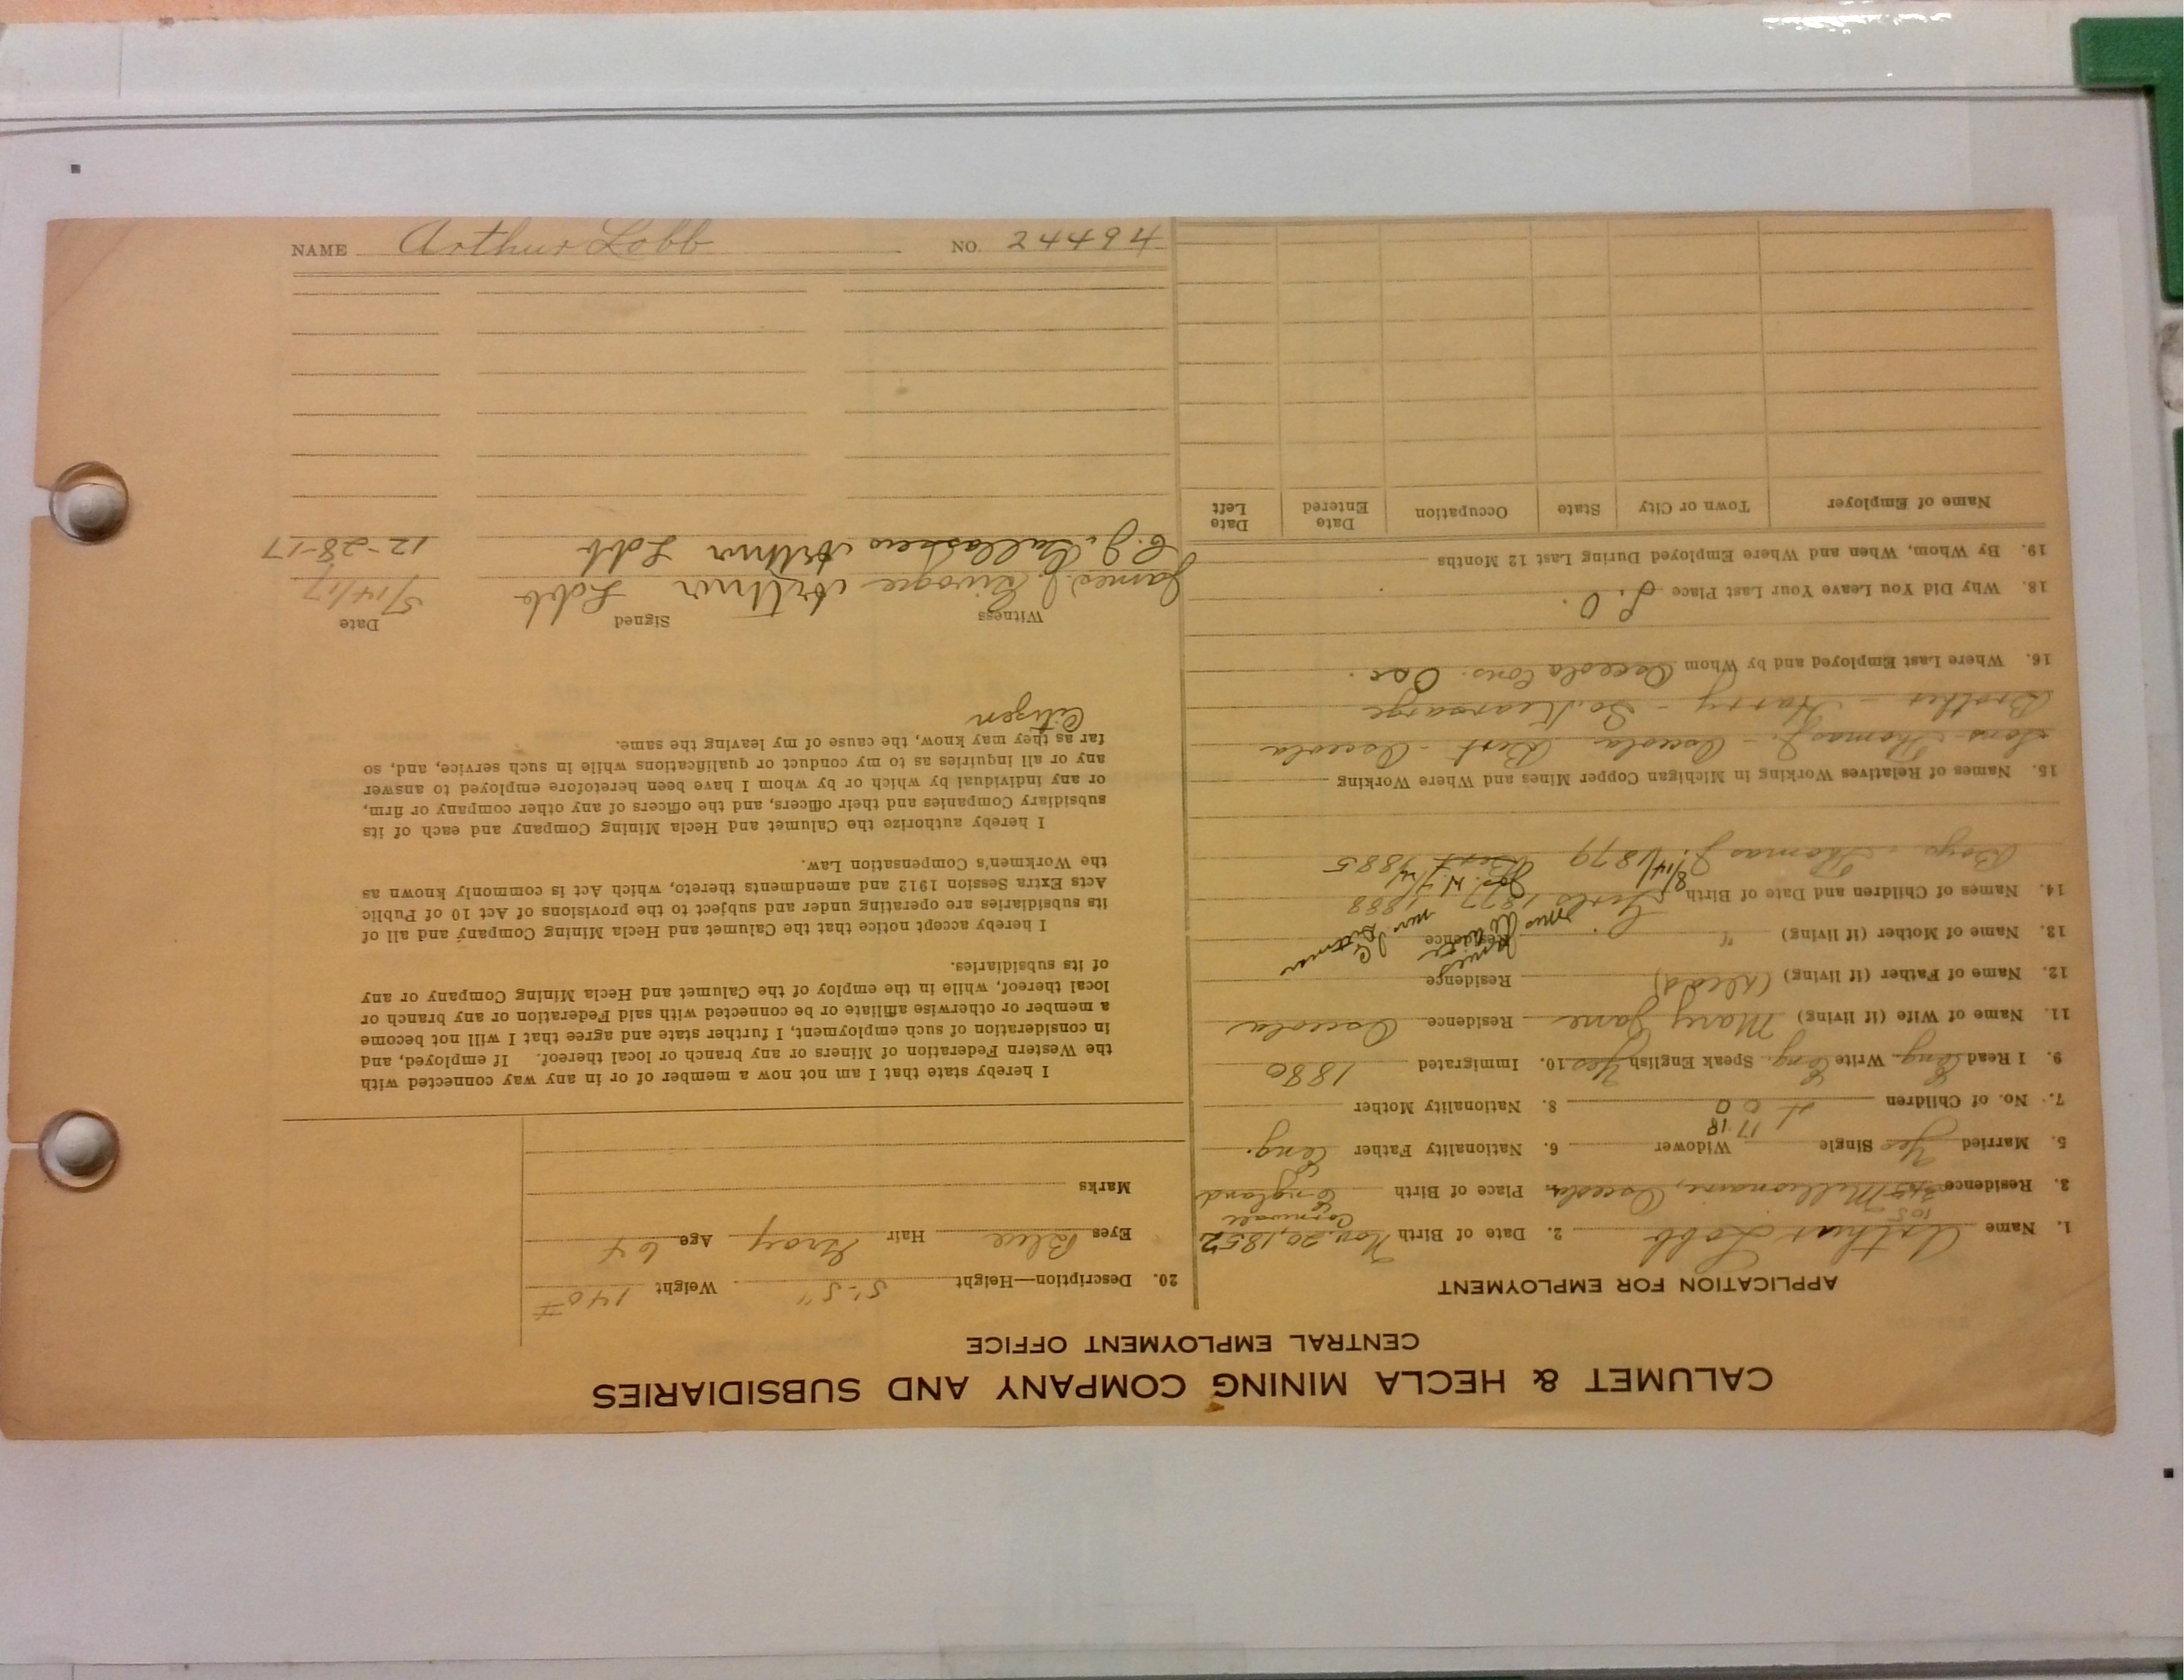 CALUMET & HECLA MINING COMPANY AND SUBSIDIARIES
CENTRAL EMPLOYMENT OFFICE
APPLICATION FOR EMPLOYMENT
1. Name Arthur Lobb 2. Date of Birth Nov. 20, 1852
Cornwall
3. Residence Millionaire, Osceola. 4. Place of Birth England
5. Married Yes Single Widower 6. Nationality Father Eng.
17 18
7. No. of Children 4 8. Nationality Mother
9. I Read Eng. Write Eng. Speak English Yes 10. Immigrated 1880
11. Name of Wife (if living) Mary Jane Residence Osceola
12. Name of Father (if living) (Dead) Residence
13. Name of Mother (if living) " Residence
14. Names of Children and Date of Birth Girls 1877 1888
Boys - Thomas J. 8/14/1879 1885
15. Names of Relatives Working in Michigan Copper Mines and Where Working
Sons - Thomas J. - Osceola Bert - Osceola
Brother - Harry - So. Kearsarge
16. Where Last Employed and by Whom Osceola Cons. Osc.
18. Why Did You Leave Your Last Place L. O.
19. By Whom, When and Where Employed During Last 12 Months
Name of Employer Town or City State Occupation Date Entered Date Left
20. Description—Height 5'-5" Weight 140#
Eyes Blue Hair Gray Age 64
Marks
I hereby state that I am not now a member of or in any way connected with
the Western Federation of Miners or any branch or local thereof. If employed, and
in consideration of such employment, I further state and agree that I will not become
a member or otherwise affiliate or be connected with said Federation or any branch or
local thereof, while in the employ of the Calumet and Hecla Mining Company or any
of its subsidiaries.
I hereby accept notice that the Calumet and Hecla Mining Company and all of
its subsidiaries are operating under and subject to the provisions of Act 10 of Public
Acts Extra Session 1912 and amendments thereto, which Act is commonly known as
the Workmen's Compensation Law.
I hereby authorize the Calumet and Hecla Mining Company and each of its
subsidiary Companies and their officers, and the officers of any other company or firm,
or any individual by which or by whom I have been heretofore employed to answer
any or all inquiries as to my conduct or qualifications while in such service, and, so
far as they may know, the cause of my leaving the same.
Citizen
Witness Signed Date
James J. Arthur Lobb 5/14/17
C. J. Arthur Lobb 12-28-17
NAME Arthur Lobb NO. 24494